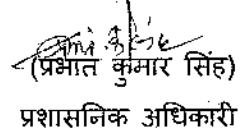 (प्रभात कुमार सिंह)
प्रशासनिक अधिकारी